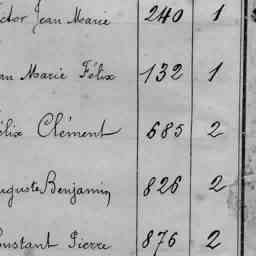 ctor Jean Marie 240 1
an Marie Félix 132 1
élix Clément 685 2
uguste Benjamin 826 2
onstant Pierre 876 2